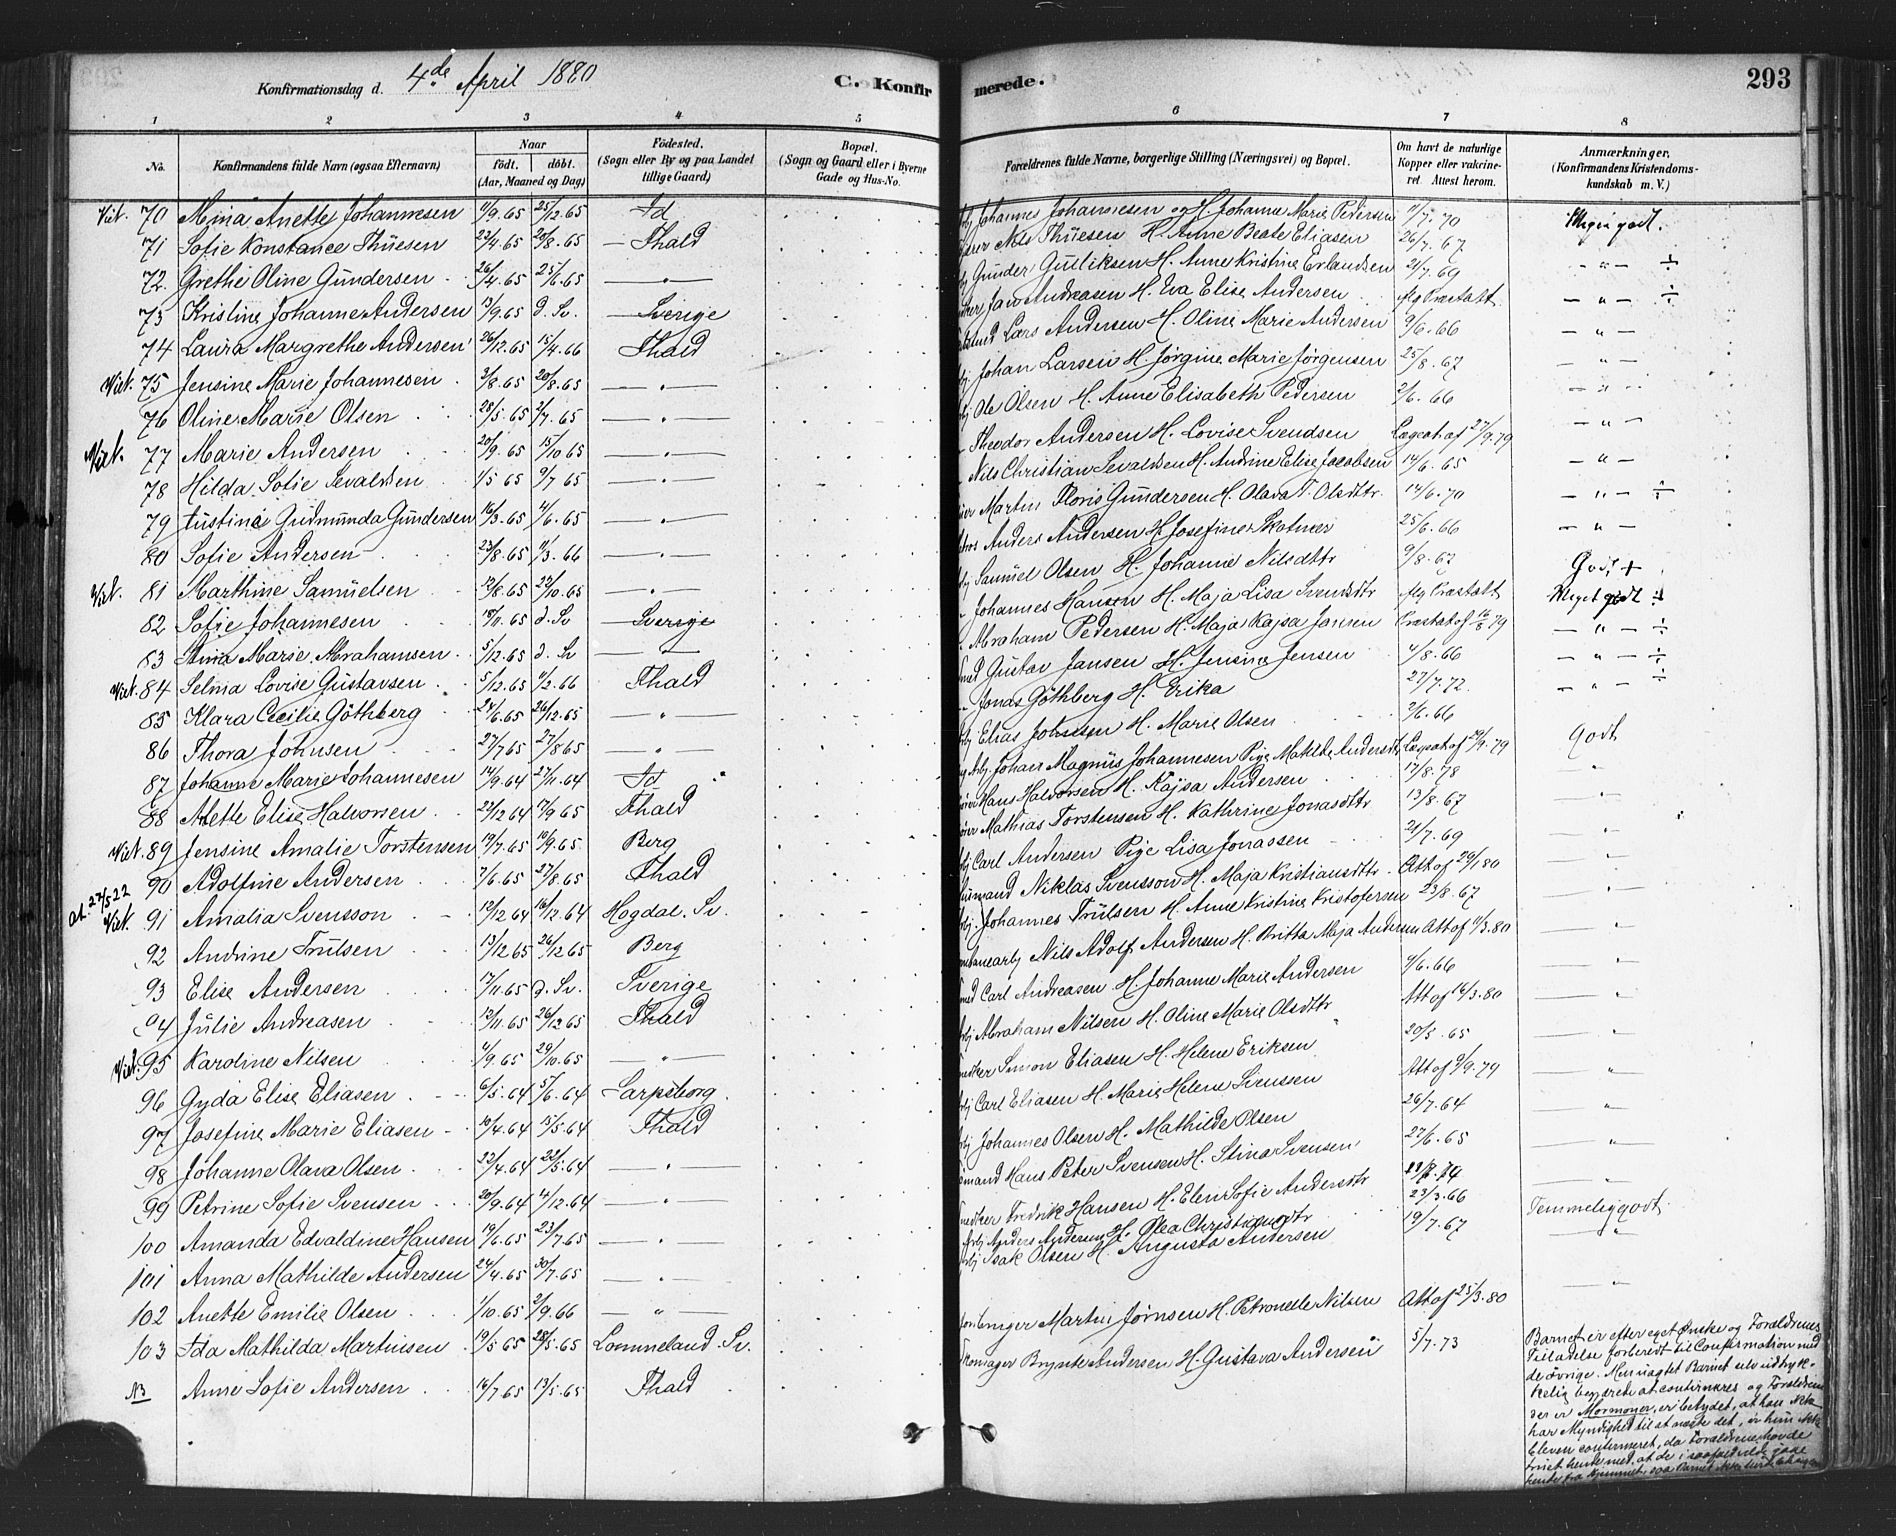 Konfirmationsdag d. 4de April 1880 C. Konfirmerede. 293
1 2 3 4 5 6 7 8
No. Konfirmandens fulde Navn (ogsaa Efternavn) Naar födt. döbt. (Aar, Maaned og Dag) Födested. (Sogn eller By og paa Landet tillige Gaard) Bopæl. (Sogn og Gaard eller i Byerne Gade og Hus-No. Forældrenes fulde Navne, borgerlige Stilling (Næringsvei) og Bopæl. Om havt de naturlige Kopper eller vakcineret. Attest herom. Anmærkninger, (Konfirmandens Kristendomskundskab m. V.)
70 Mina Anette Johannesen 11/9.65 25/12.65 Id Johannes Johannesen og H. Johanne Marie Pedersen 11/7.70 Meget godt.
71 Sofie Konstance Thüesen 22/4.65 20/8.65 Fhald Nils Thüesen H. Anne Beate Eliasen 26/7.67
72 Grethe Oline Gundersen 26/4.65 25/6.65 — " — Gunder Gulliksen H. Anne Kristine Erlandsen 21/7.69 — " — ÷
73 Kristine Johanne Andersen 13/9.65 d. Sv. Sverige Andreasen H. Eva Elise Andersen — " — ÷
74 Laura Margrethe Andersen 26/12.65 15/4.66 Fhald Lars Andersen H. Oline Marie Andersen 9/6.66 — " —
75 Jensine Marie Johannesen 3/8.65 20/8.65 — " — Johan Larsen H. Jørgine Marie Jørgensen 25/8.67 — " —
76 Oline Marie Olsen 28/5.65 2/7.65 — " — Ole Olsen H. Anne Elisabeth Pedersen 2/6.66 — " —
77 Marie Andersen 20/9.65 15/10 65 — " — Theodor Andersen H. Lovise Svendsen Lægeat af 27/9.79 — " —
78 Hilda Sofie Sevaldsen 1/5 65 9/7 65 — " — Nils Christian Sevaldsen H. Andrine Elise Jacobsen 14/6.65 — " —
79 Justine Gudmunda Gundersen 16/3.65 4/6.65 — " — Martin Floris Gundersen H. Olava T. Olsdttr. 14/6.70 — " — ÷
80 Sofie Andersen 23/8.65 11/3.66 — " — Anders Andersen H. Josefine Skotnær 25/6.66 — " —
81 Marthine Samuelsen 12/8.65 22/10.65 — " — Samuel Olsen H. Johanne Nilsdttr 9/8.67 Godt +
82 Sofie Johannesen 18/11.65 d. Sv Sverige Johannes Hansen H. Maja Lisa Svensdttr Meget godt ÷
83 Stina Marie Abrahamsen 5/12.65 d. Sv — " — Abraham Pedersen H. Maja Kajsa Jansen Præstat af 16/8 79 — " — ÷
84 Selma Lovise Gustavsen 5/12.65 4/2.66 Fhald Gustav Jansen H. Jensine Jensen 4/8.66 — " — ÷
85 Klara Cecilie Göthberg 24/6.65 26/12.65 — " — Jonas Göthberg H. Erika 27/7.72. — " — ÷
86 Thora Johnsen 27/7 65 27/8 65 — " — Elias Johnsen H. Marie Olsen 2/6.66 Godt
87 Johanne Marie Johannesen 14/9.64 27/11.64 Id Johan Magnus Johannesen Pige Matilde Andersdtr Lægeat af 29/9.79 "
88 Anette Elise Halvorsen 22/12 64 17/9 65 Fhald Hans Halvorsen H. Kajsa Andersen 17/8.78
89 Jensine Amalie Torstensen 19/7.65 10/9.65 Berg Mathias Torstensen H. Kathrine Jonasdttr 13/8.67 — " —
90 Adolfine Andersen 7/6.65 27/8.65 Fhald Carl Andersen Pige Lisa Jonassen 21/7.69 — " —
91 Amalia Svensson 12/12 64 16/12.64 Hogdal. Sv. Niklas Svensson H. Maja Kristiansdttr Att af 29/1 80 — " —
92 Andrine Trulsen 13/12 65 26/12 65 Berg Johannes Trulsen H. Anne Kristine Kristofersen 23/8.67 — " —
93 Elise Andersen 17/11.65 d. Sv. Sverige Nils Adolf Andersen H. Britta Maja Andersen Att af 11/3.80 — " —
94 Julie Andreasen 12/11.65 26/12 65 Fhald Carl Andreasen H. Johanne Marie Andersen 4/6.66 — " —
95 Karoline Nilsen 4/9.65 29/10.65 — " — Abraham Nilsen H. Oline Marie Olsdttr Att af 14/3.80 — " —
96 Gyda Elise Eliasen 6/5.64 5/6.64 Sarpsborg. Simon Eliasen H. Helene Eriksen 20/5.65 — " —
97 Josefine Marie Eliasen 10/4.64 15/5.64 Fhald Carl Eliasen H. Marie Helene Svensen Att af 9/9.79 — " —
98 Johanne Olava Olsen 22/4.64 22/5.64 — " — Johannes Olsen H. Mathilde Olsen 26/7.64 — " —
99 Petrine Sofie Svensen 20/9.64 4/12.64 — " — Hans Peter Svensen H. Stina Svensen 27/6.65 — " —
100 Amanda Edvaldine Hansen 19/6.65 23/7.65 — " — Fredrik Hansen H. Elen Sofie Andersdtr — " —
101 Anna Mathilde Andersen 24/4.65 30/7.65 — " — Anders Andersen H. Olea Christiansdtr 23/3.66 Temmelig godt
102 Anette Emilie Olsen 1/10.65 2/9.66 — " — Isak Olsen H. Augusta Andersen 19/7.67 — " —
103 Ida Mathilda Martinsen 19/5 65 28/5.65 Lommeland. Sv. Martin Jørnsen H. Petronelle Nilsen Att af 25/3.80 — " —
NB Anne Sofie Andersen 14/7.65 13/5.65 Fhald Brynte Andersen H. Gustava Andersen 5/7.73 Barnet er efter eget Ønske og Forældrenes
Tilladelse forberedt til Confirmation med
de øvrige. Men uagtet Barnet selv udtryk-
kelig begjærede at confirmeres og Forældrene
der er Mormoner, er betydet, at han ikke
har Myndighed til at negte det, er hun ikke
bleven confirmeret, da Forældrene havde
truet hende med, at de i saafald vilde jage
hende fra Hjemmet